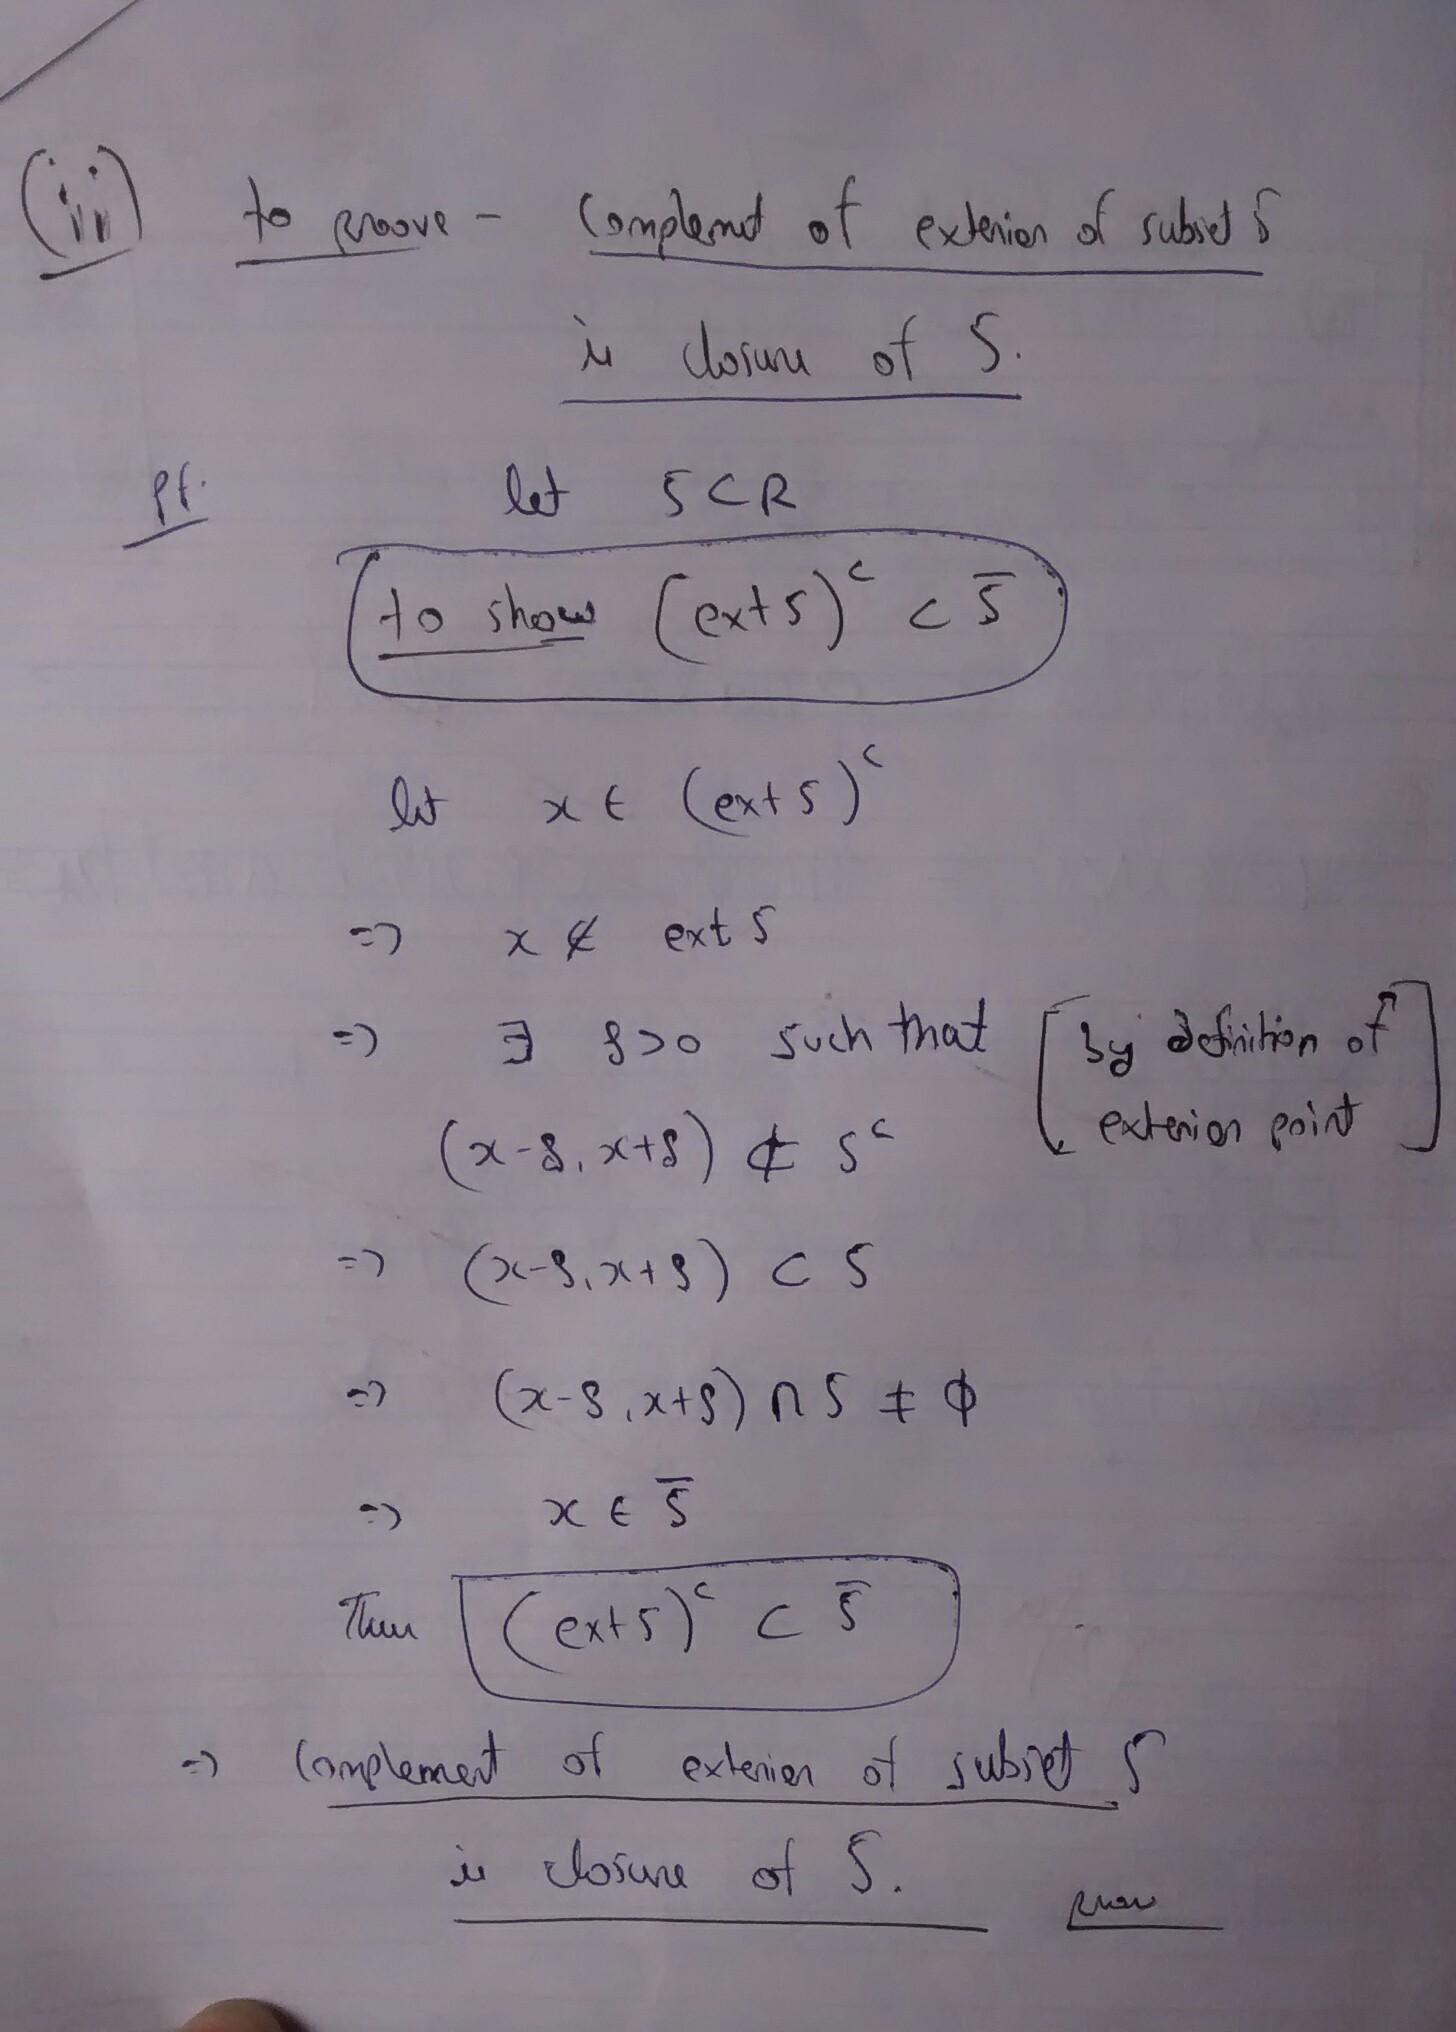 (iii) to proove - Complemnt of exterior of subset S
is closure of S.
Pf. let S ⊂ R
to show (ext S)ᶜ ⊂ S̅
let x ∈ (ext S)ᶜ
=> x ∉ ext S
=> ∃ δ>0 such that [by definition of
exterior point]
(x-δ, x+δ) ⊄ Sᶜ
=> (x-δ, x+δ) ⊂ S
=> (x-δ, x+δ) ∩ S ≠ ϕ
=> x ∈ S̅
Thus (ext S)ᶜ ⊂ S̅
=> Complement of exterior of subset S
is closure of S.